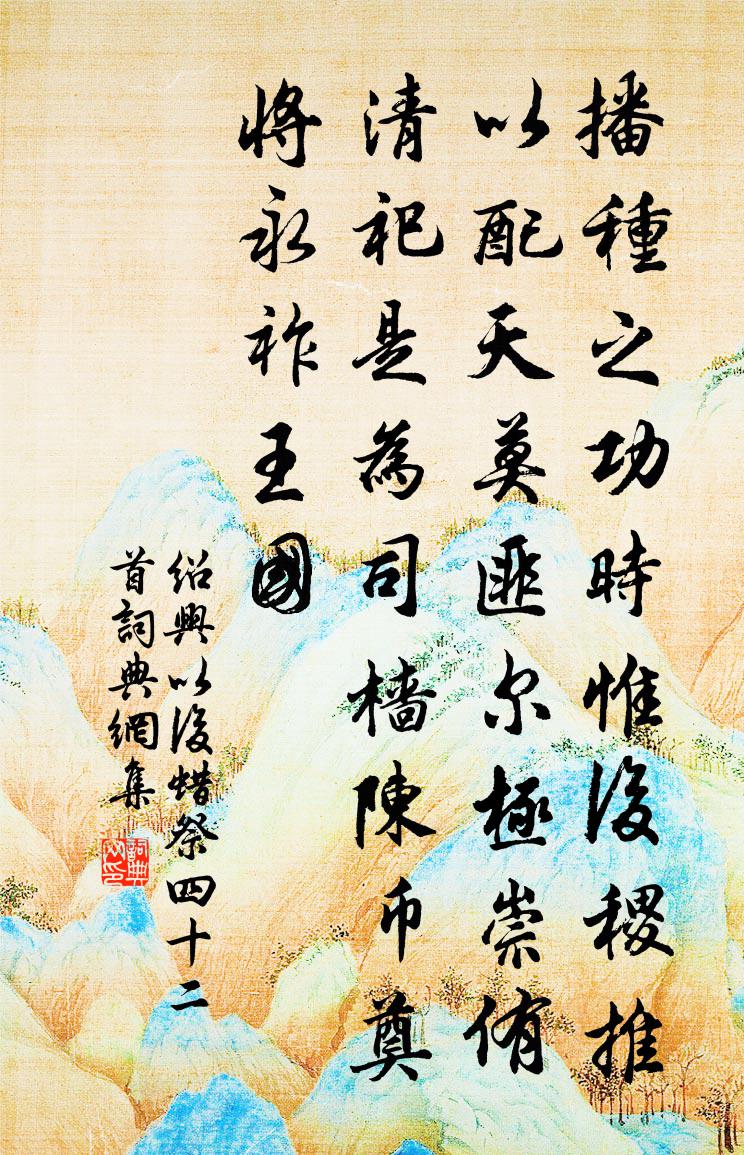 播種之功時惟後稷推
以配天莫匪尔極崇侑
清祀是為司檣陳币奠
將永祚王國
紹興以後蜡祭四十二
首詞典網集